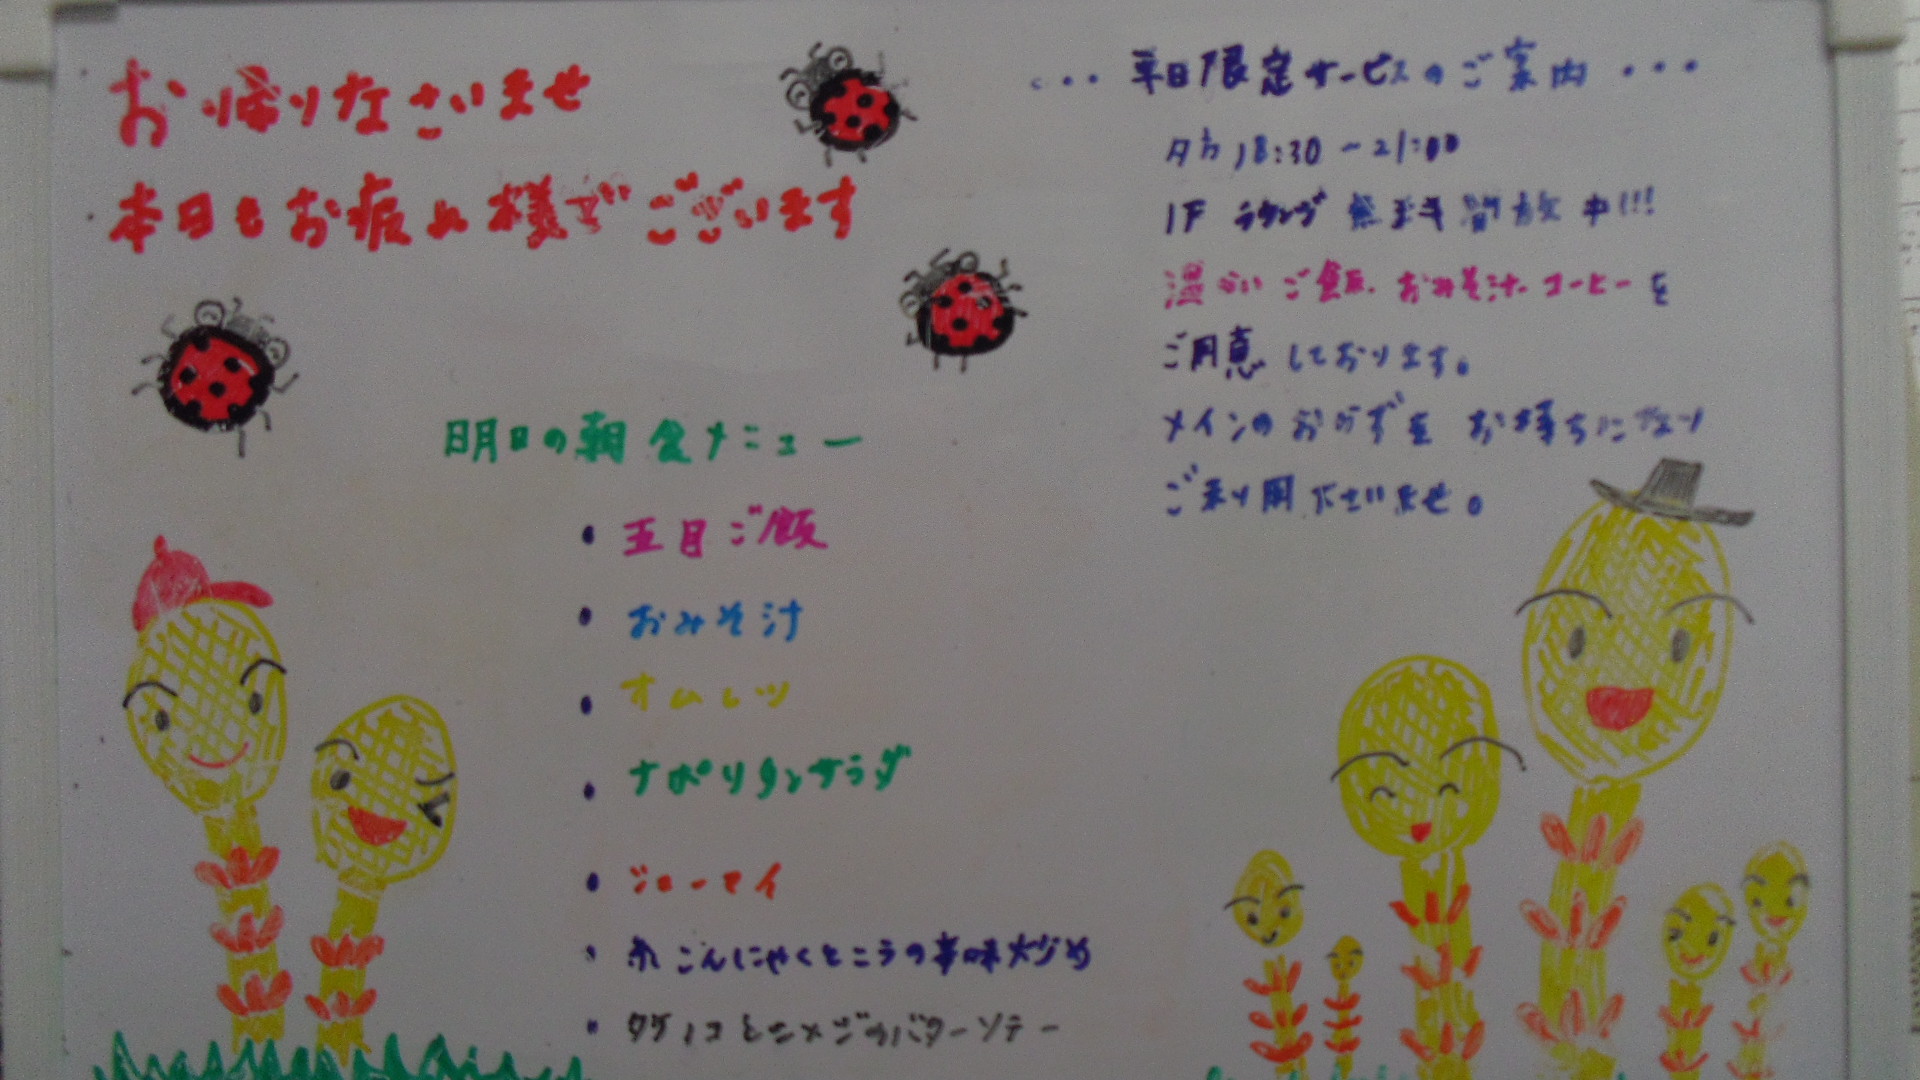 お帰りなさいませ
本日もお疲れ様でございます
明日の朝食メニュー
・五目ご飯
・おみそ汁
・オムレツ
・ナポリタンサラダ
・シューマイ
・糸こんにゃくとこうの辛味炒め
・タケノコとシメジのバターソテー
・・・平日限定サービスのご案内・・・
夕方18:30～21:00
1F ラウンジ 無料開放中!!!
温かいご飯、おみそ汁、コーヒーを
ご用意しております。
メインのおかずをお持ちになり
ご利用下さいませ。